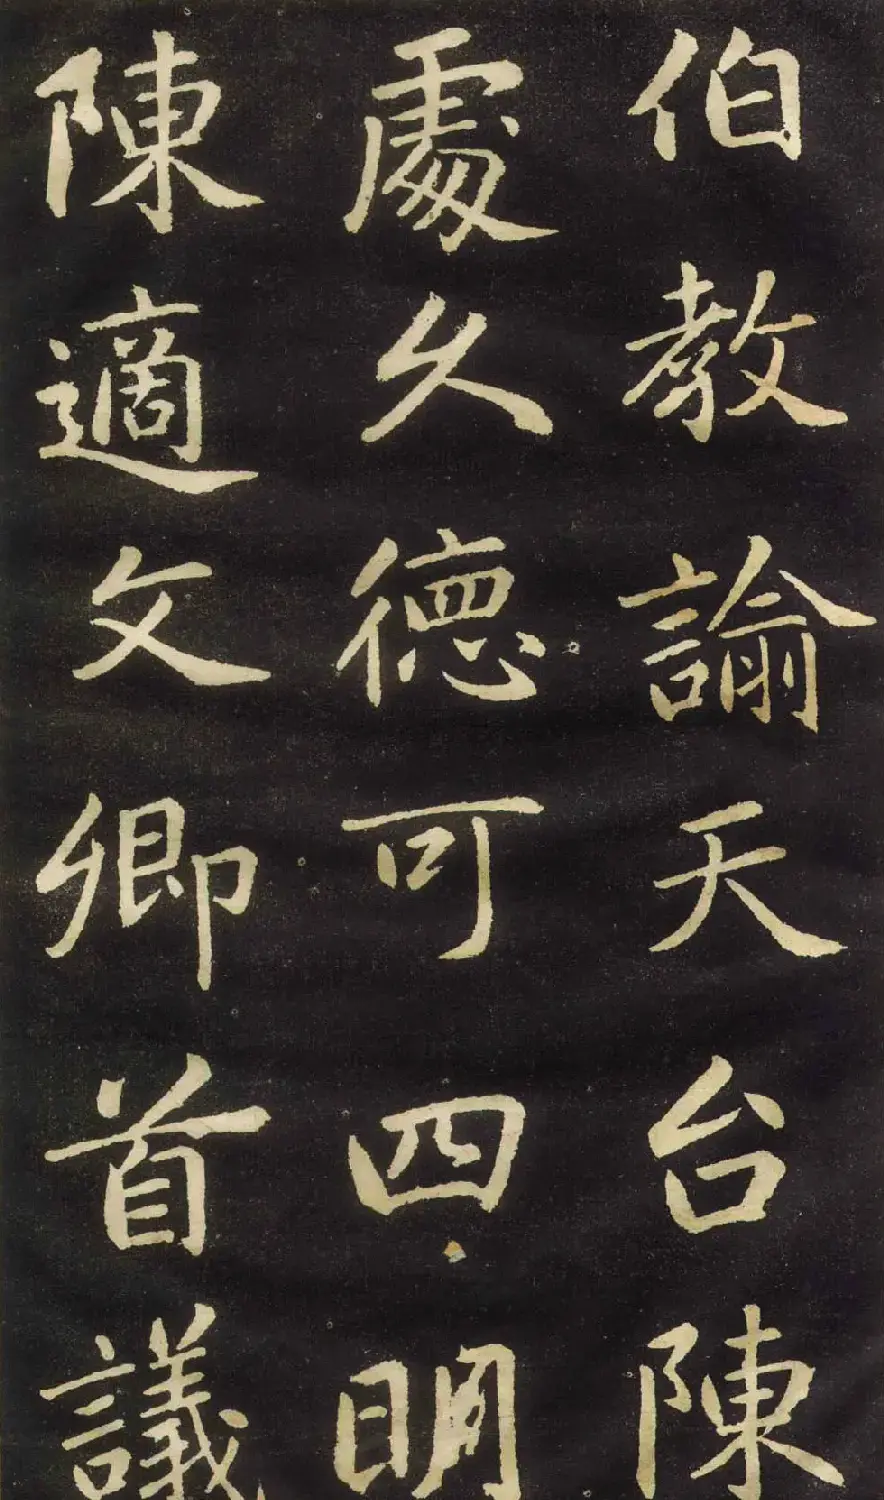 伯教諭天台陳
處久德可四明
陳適文卿首議